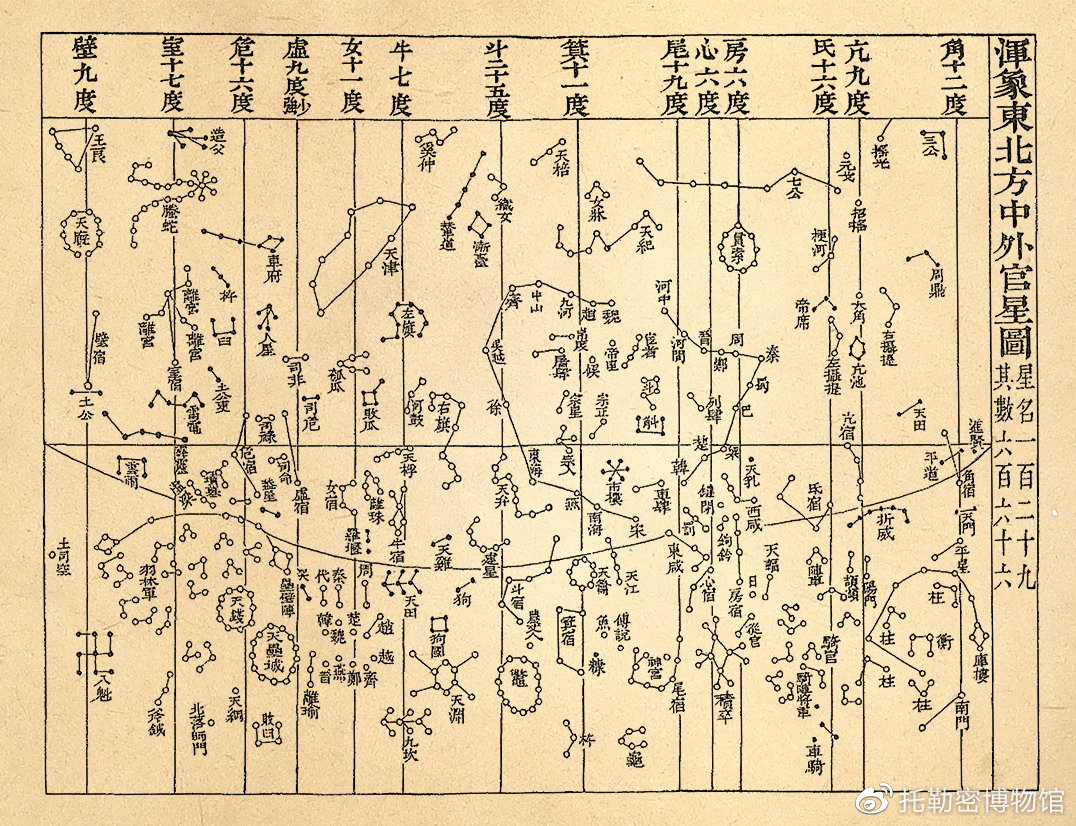 渾象東北方中外官星圖
星名一百二十九
其數六百六十六
角十二度
亢九度
氐十六度
房六度
心六度
尾十九度
箕十一度
斗二十五度
牛七度
女十一度
虛九度少強
危十六度
室十七度
壁九度
三公
周鼎
天田
進賢
平道
角宿
天門
平星
庫樓
南門
柱
柱
柱
柱
衡
搖光
元戈
招搖
大角
右攝提
亢池
左攝提
帝席
梗河
亢宿
折威
頓頑
陽門
七公
貫索
氐宿
陣車
騎官
騎陣將軍
車騎
天乳
西咸
天輻
日
房宿
從官
積卒
鍵閉
鉤鈐
罰
東咸
心宿
周
秦
蜀
巴
梁
楚
韓
鄭
晉
河間
河中
列肆
天紀
女牀
天棓
魏
趙
九河
中山
齊
吳越
徐
東海
燕
南海
宋
宦者
帝座
候
斗
斛
宗正
宗星
宗人
市樓
車肆
天江
天籥
傅說
魚
神宮
尾宿
箕宿
糠
杵
龜
農丈人
鱉
斗宿
建星
天弁
織女
漸臺
輦道
奚仲
天津
左旗
右旗
河鼓
天桴
天雞
狗
狗國
天淵
天田
九坎
牛宿
羅堰
女宿
離珠
敗瓜
瓠瓜
周
秦
代
趙
越
齊
鄭
楚
魏
韓
燕
晉
離瑜
司非
司危
司祿
司命
虛宿
哭
壘壁陣
天壘城
敗臼
車府
人星
杵
臼
造父
螣蛇
危宿
蓋屋
墳墓
天錢
天綱
北落師門
離宮
離宮
離宮
室宿
土公吏
雷電
羽林軍
斧鉞
王良
天廄
壁宿
土公
雲雨
霹靂
土司空
八魁
托勒密博物馆